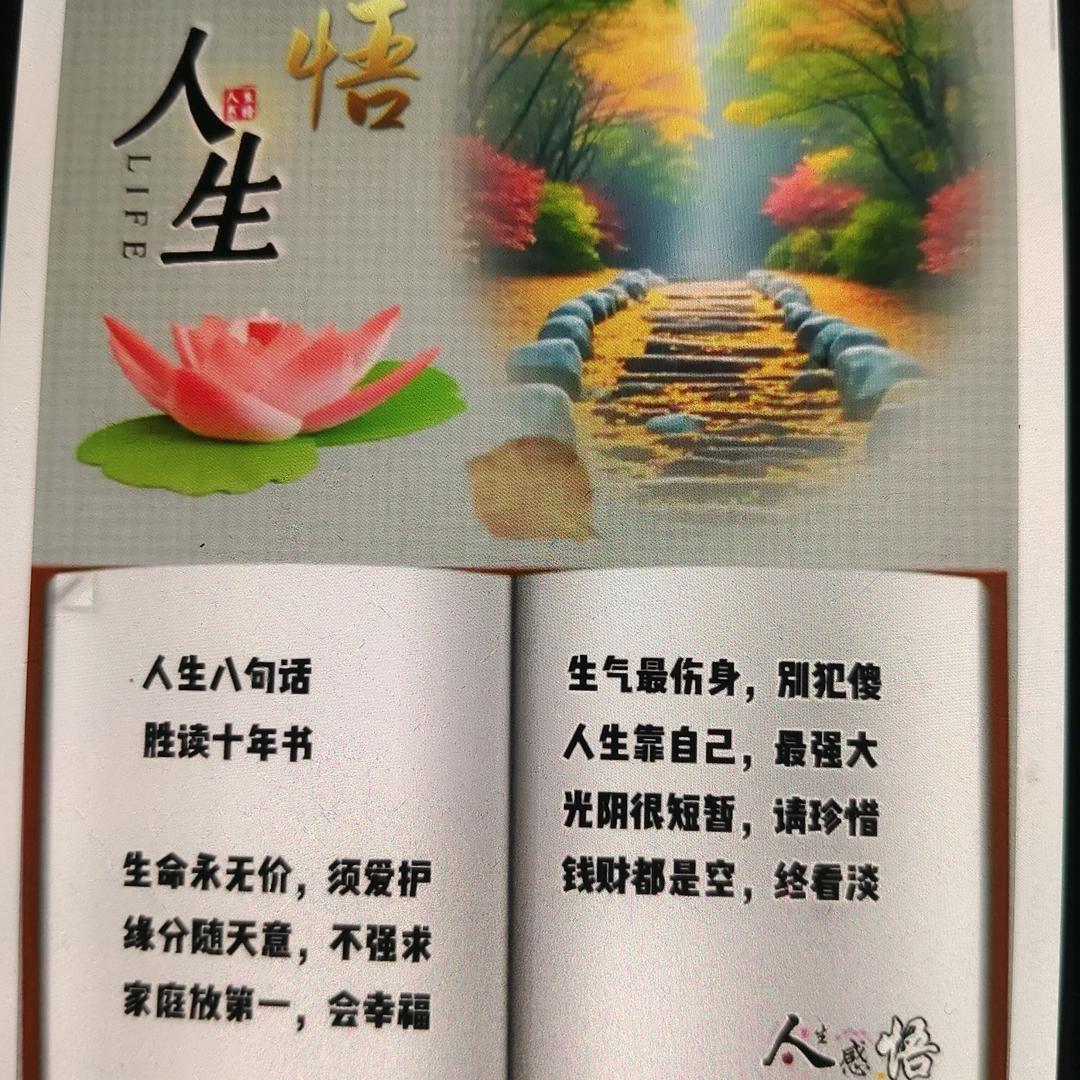 悟
人
生
LIFE
人生八句话
胜读十年书
生命永无价，须爱护
缘分随天意，不强求
家庭放第一，会幸福
生气最伤身，别犯傻
人生靠自己，最强大
光阴很短暂，请珍惜
钱财都是空，终看淡
人生感悟